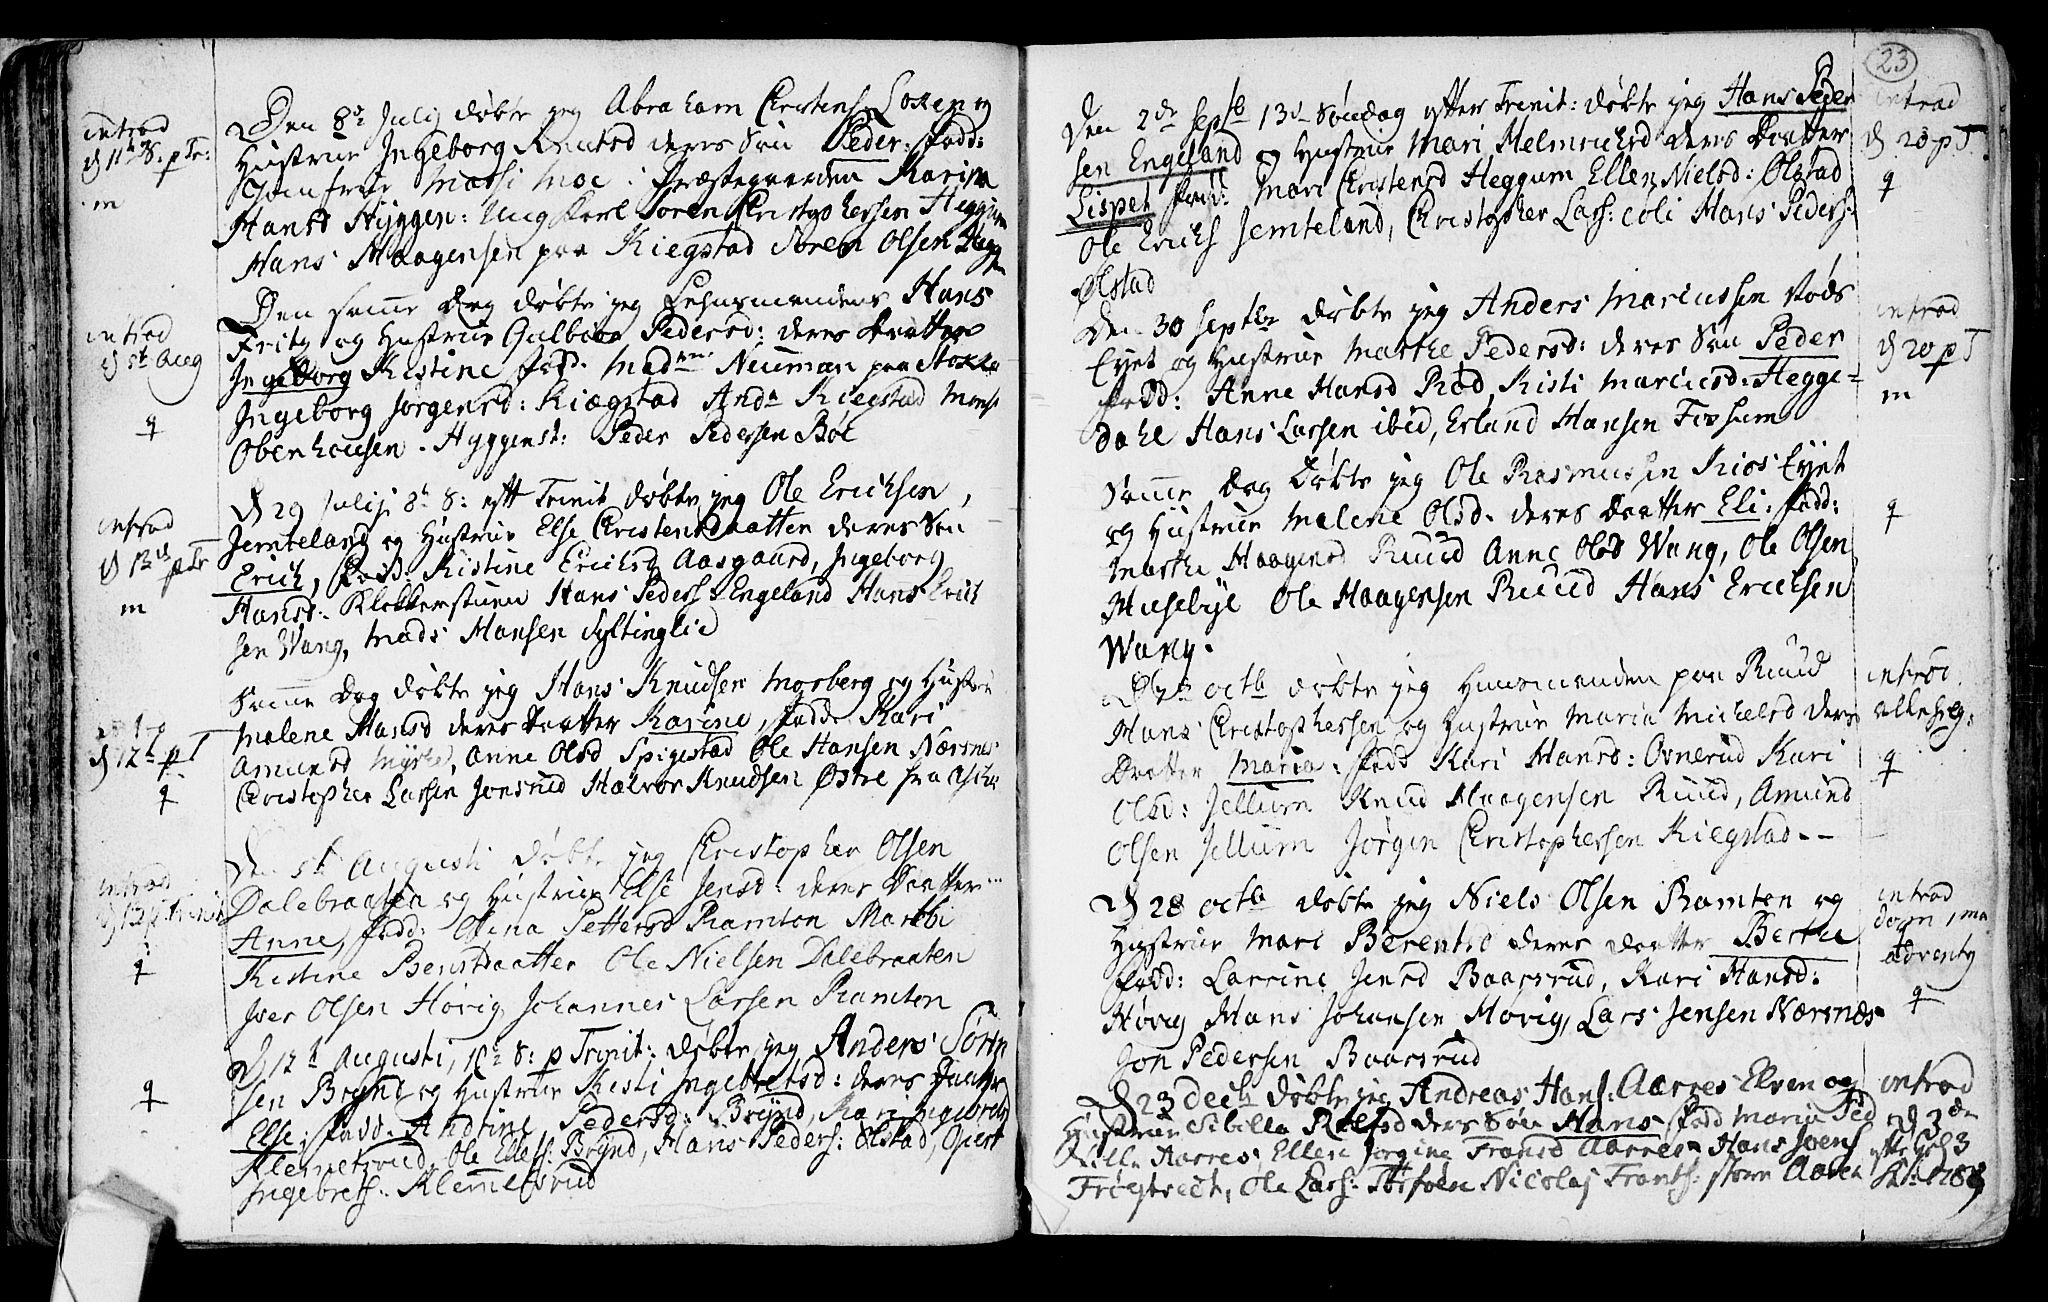 introd
d 11te S: p Tr:
m
Den 8de Julij døbte jeg Abraham Christens. Loxen og
Hustrue Ingeborg Knutsd deres Søn Peder. Fadd:
Jomfrue Massi Moe i Præstegaarden Karin
Hansd Hÿggen: Ung Karl Søren Christophersen Heggum
Hans Haagensen paa Kiegstad Søren Olsen
introd
d 5te Aug
q
Den samme Dag døbte jeg Lehnsmandens Hans
Fritz og Hustrue Gulbior Pedersd: deres Daatter
Ingeborg Kistine Fad: Madme Neuman paa
Ingeborg Jørgensd: Kiægstad And: Kiegstad Mons
Obenhausen. Hyggenst: Peder Pedersen Bøe
introd
d 13de p Tr
m
D 29 Julij 8de S: eft Trinit døbte jeg Ole Erichsen
Jemteland og Hustrue Else Christensdaatter deres Søn
Erich, Fadd: Kistine Erichsd Aasgaard, Ingeborg
Hansd: Klokkerstuen Hans Peders. Engeland Hans Erich
sen Wang, Mads Hansen Syltinglie
d 12te p T
q
Samme Dag døbte jeg Hans Knudsen Morberg og Hustrue
Malene Hansd deres Daatter Karine, Fadd: Kari
Amunsd Myhre, Anne Olsd Spigestad Ole Hansen Nærsnes
Christopher Larsen Jonsrud Halvor Knudsen Østre fra
introd
q
Den 5te Augusti døbte jeg Christopher Olsen
Dalebraaten og Hustrue Else Jensd: deres Daatter
Anne, Fadd: Stina Pettersd Ramton Marthi
Kistine Bentsdaatter Ole Nielsen Dalebraaten
Iver Olsen Høvig Johannes Larsen Ramton
q
D 12te Augusti, 10de S: p Trinit: døbte jeg Anders Søren
sen Brÿnd og Hustrue Kisti Ingebretsd: deres Daatter
Else: Fadd: Andrine Pedersd: Brÿnd, Kari Ingebretsd
Klemetsrud, Ole Ellefs: Brÿnd, Hans Peders: Ølstad, Giert
Ingebrets: Klemetsrud
23
introd
d 20 p T.
q
Den 2den Septb 13de Søndag efter Trinit: døbte jeg Hans Peder
sen Engeland og Hustrue Mari Helmichsd deres Daatter
Lispet Fadd: Mari Christensd Heggum Ellen Nielsd: Ølstad
Ole Erichs Jemteland, Christopher Lars: Hans Peders:
Ølstad
introd
d 20 p T
m
Den 30 Septbr døbte jeg Anders Mariussen Røds
Eyet og Hustrue Marthe Pedersd: deres Søn Peder
Fadd: Anne Hansd Rød, Kisti Mariusd: Hegge=
dahl Hans Larsen ibid, Erland Hansen Fossum
q
Samme Dag Døbte jeg Ole Rasmussen Kios Eyet
og Hustrue Malene Olsd. deres Daatter Eli: Fadd:
Marthe Haagensd Ruud Anne Olsd Wang, Ole Olsen
Husebÿe Ole Haagensen Ruud Hans Erichsen
Wang.
introd.
allehelg:
q
D octb døbte jeg Huusmanden paa Ruud
Hans Christophersen og Hustrue Maria Michelsd deres
Daatter Maria: Fadd Kari Hansd: Ovnerud Kari
Olsd: Jellum Knud Haagensen Ruud, Amund
Olsen Jellum Jørgen Christophersen Kiegstad--
introd
dom 1ma
adventy
q
D 28 octb døbte jeg Niels Olsen Ramton og
Hustrue Mari Berentsd deres Daatter Berthe
Fadd: Larrine Jensd Baarsrud, Kari Hansd:
Høvig Hans Johansen Høvig, Lars Jensen Nærsnæs
Jon Pedersen Baarsrud
introd
d 3de
D 23 Decb døbte jeg Andreas Hans. Aarres Elven og
Hustrue Sibilla Rolfsd deres Søn Hans Fad Maria Ped
Aarres, Ellen Jorgine Fransd Aarres Hans Joens
Ole Lars: Nicolaj Frants: